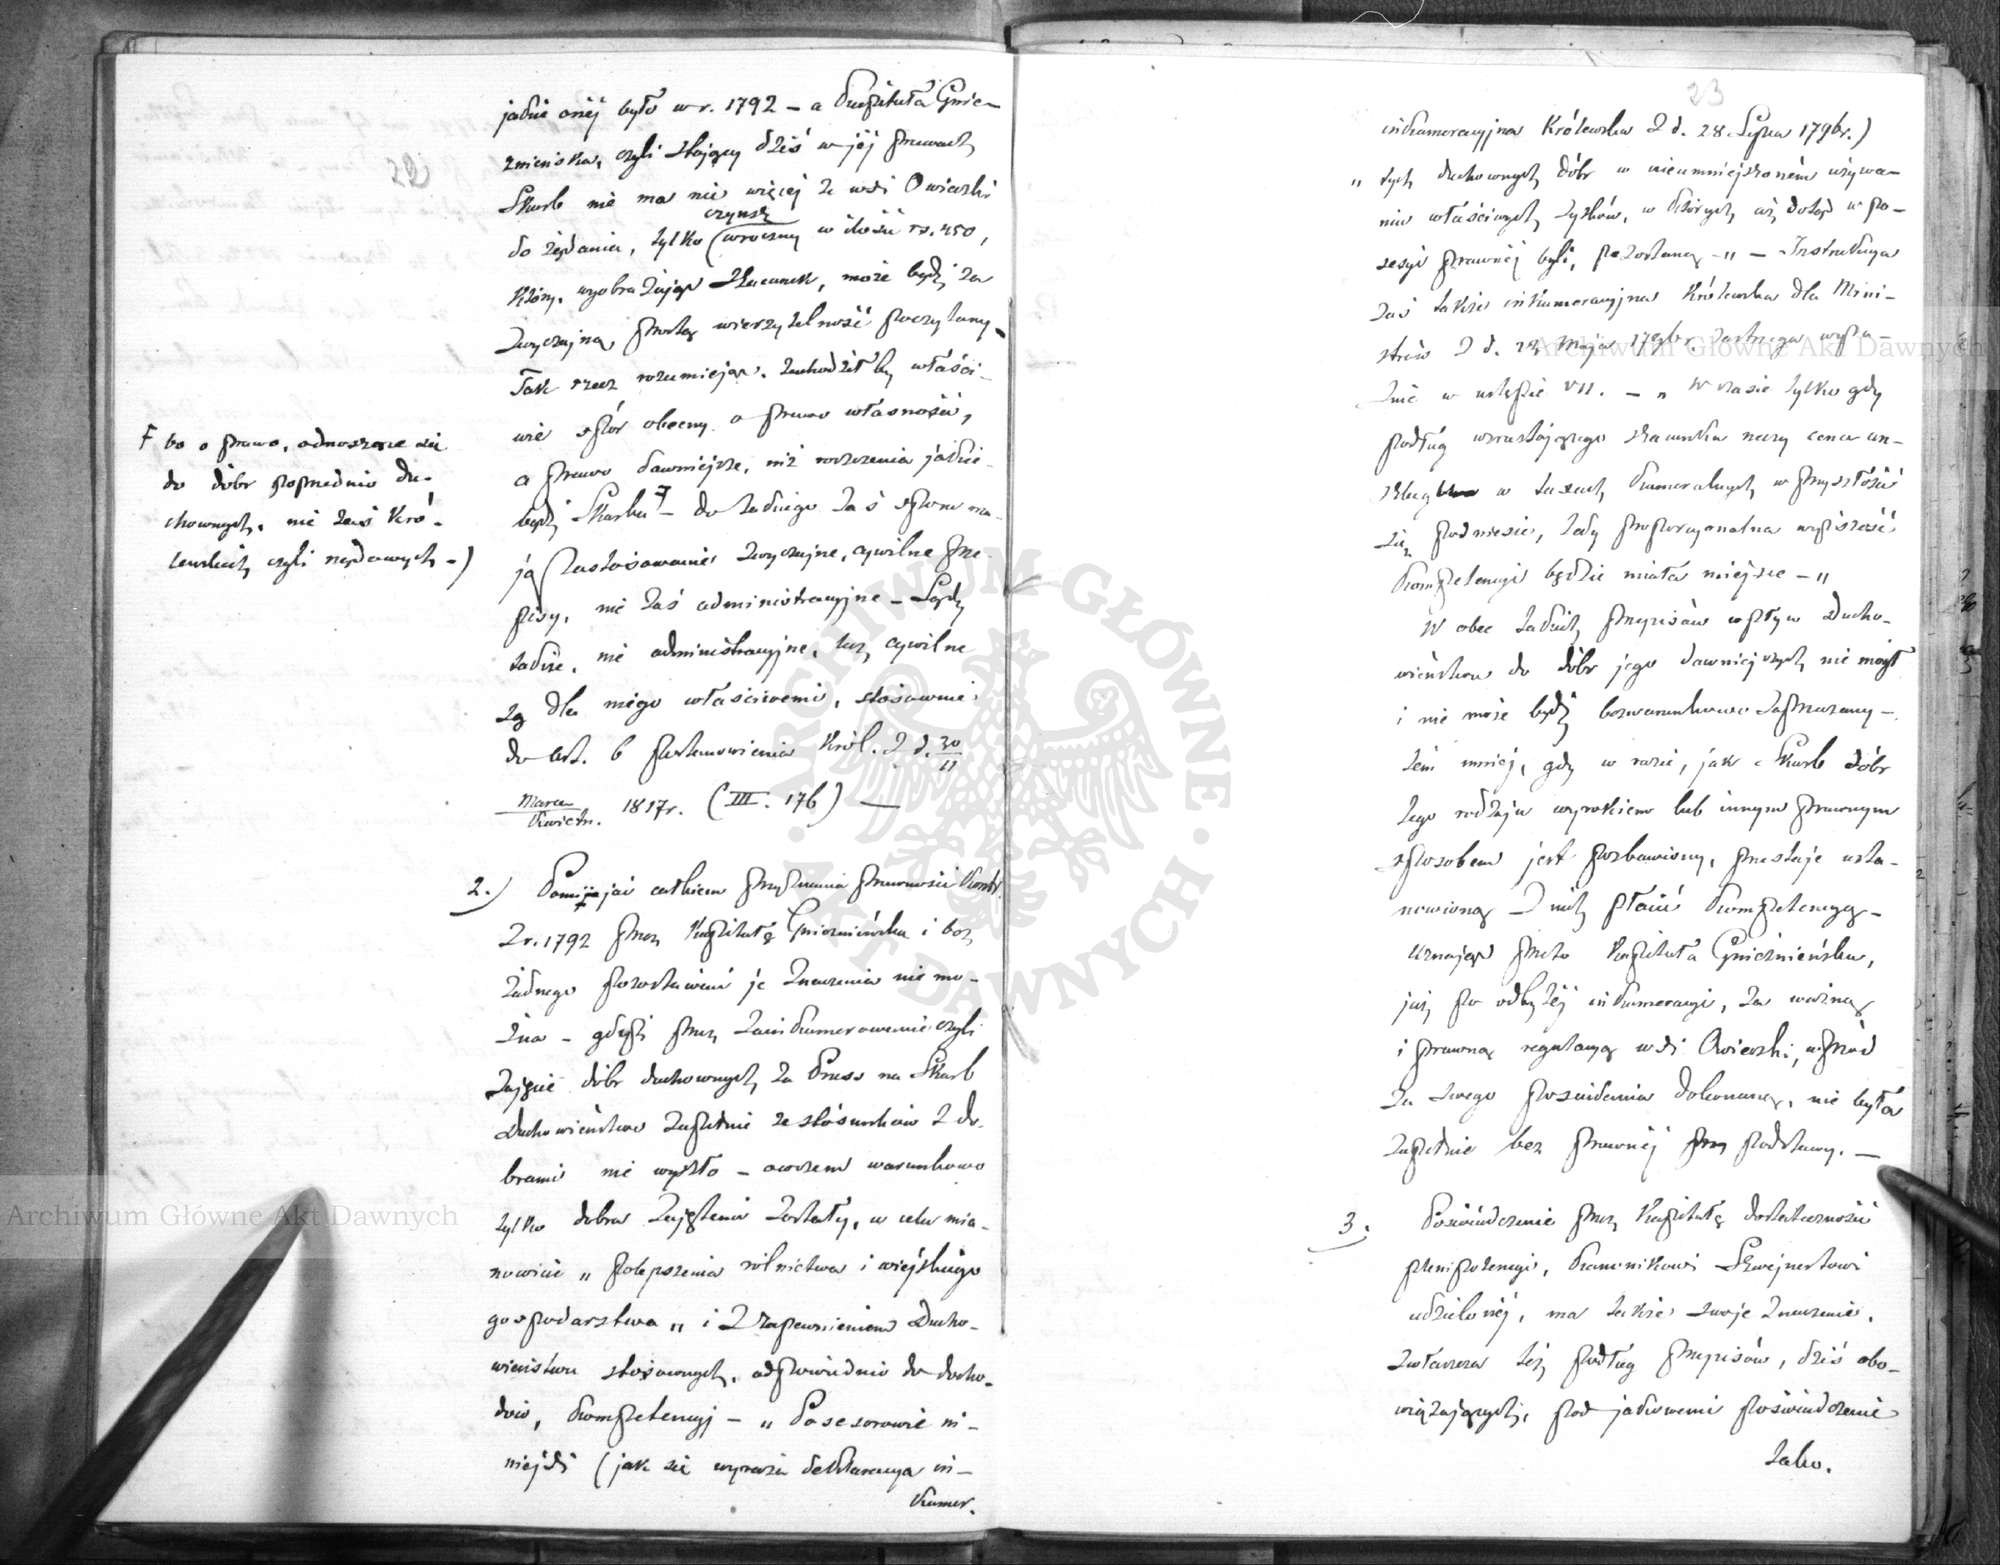 22
jakie onéj było w r. 1792 – a Kapituła Gnie-
znieńska, czyli stojący dziś w jéj prawach
Skarb nie ma nic więcej z wsi Owieczki
czynsz
do żądania, tylko wroczny w ilości rs. 450,
który, wyobrażając szacunek, może być za
zwyczajną, prostą wierzytelność poczytany –
Tak rzecz rozumiejąc, zachodziłby właści-
wie spór obecny o prawo własności,
o prawo dawniejsze, niż roszczenia jakie-
bądź Skarbu Ŧ – do takiego zaś sporu ma-
ją zastosowanie zwyczajne, cywilne prze-
pisy, nie zaś administracyjne – Sądy
także, nie administracyjne, lecz cywilne
są dla niego właściwemi, stósownie
do art. 6 postanowienia Król. z d. 30/11
Marca/Kwietn. 1817 r. (III. 176) —
Ŧ bo o prawo, odnoszące się
do dóbr poprzednio du-
chownych, nie zaś Kró-
lewskich czyli rządowych –)
2.) Pomijać całkiem przyznania prawności Kontr.
z r. 1792 przez Kapitułę Gnieznieńską i bez
żadnego pozostawiać je znaczenia nie mo-
żna – gdyż przez zainkamerowanie czyli
zajęcie dóbr duchownych za Pruss na Skarb
Duchowieństwo zupełnie ze stósunków z do-
brami nie wyszło – owszem warunkowo
tylko dobra zajętemi zostały, w celu mia-
nowicie „ polepszenia rolnictwa i wiejskiego
gospodarstwa „ i z zapewnieniem Ducho-
wieństwu stósownych, odpowiednio do docho-
dów, kompetencyj – „ Posesorowie ni-
niejsi (jak się wyraża deklaracya in-
kamer.
23
inkameracyjna Królewska z d. 28 Lipca 1796 r.)
„ tych duchownych dóbr w nieumniejszoném używa-
niu właściwych zysków, w których aż dotąd w po-
sesyi prawnéj byli, pozostaną – „ – Instrukcya
zaś także inkameracyjna Królewska dla Mini-
strów z d. Maja 1796 r. zastrzega wyra-
źnie w ustępie VII. – „ W czasie tylko gdy
podług wzrastającego szacunku rzeczy cena un-
w taxach kameralnych w przyszłości
się podniesie, tedy proporcyonalna wyższość
kompetencyi będzie miała miejsce – „
W obec takich przepisów wpływ Ducho-
wieństwa do dóbr jego dawniejszych nie mógł
i nie może być bezwarunkowo zaprzeczany –
tém mniej, gdy w razie, jak Skarb dóbr
tego rodzaju wyrokiem lub innym prawnym
sposobem jest pozbawiony, przestaje usta-
nowioną z nich płacić kompetencyą –
uznając przeto Kapituła Gnieźnieńska,
już po odbytéj inkameracyi, za ważną
i prawną regulacyą wsi Owieczki, wprzód
za swego posiadania dokonaną, nie była
zupełnie bez prawnéj podstawy. —
3.) Poświadczenie przez Kapitułę dostateczności
plenipotencyi, Kanonikowi Skwejnertowi
udzielonéj, ma także swoje znaczenie,
zwłaszcza też podług przepisów, dziś obo-
wiązujących, pod jakowemi poświadczenie
tako.
Archiwum Główne Akt Dawnych
Archiwum Główne Akt Dawnych
ARCHIWUM GŁÓWNE AKT DAWNYCH